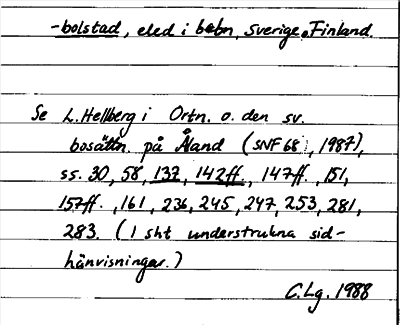 -bolstad, eled i bebn, Sverige, Finland.
Se L. Hellberg i Ortn. o. den sv.
bosättn. på Åland (SNF 68, 1987),
ss. 30, 58, 137, 142ff., 147ff., 151,
157ff., 161, 236, 245, 247, 253, 281,
283. (I sht understrukna sid-
hänvisningar.)
C. Lg. 1988